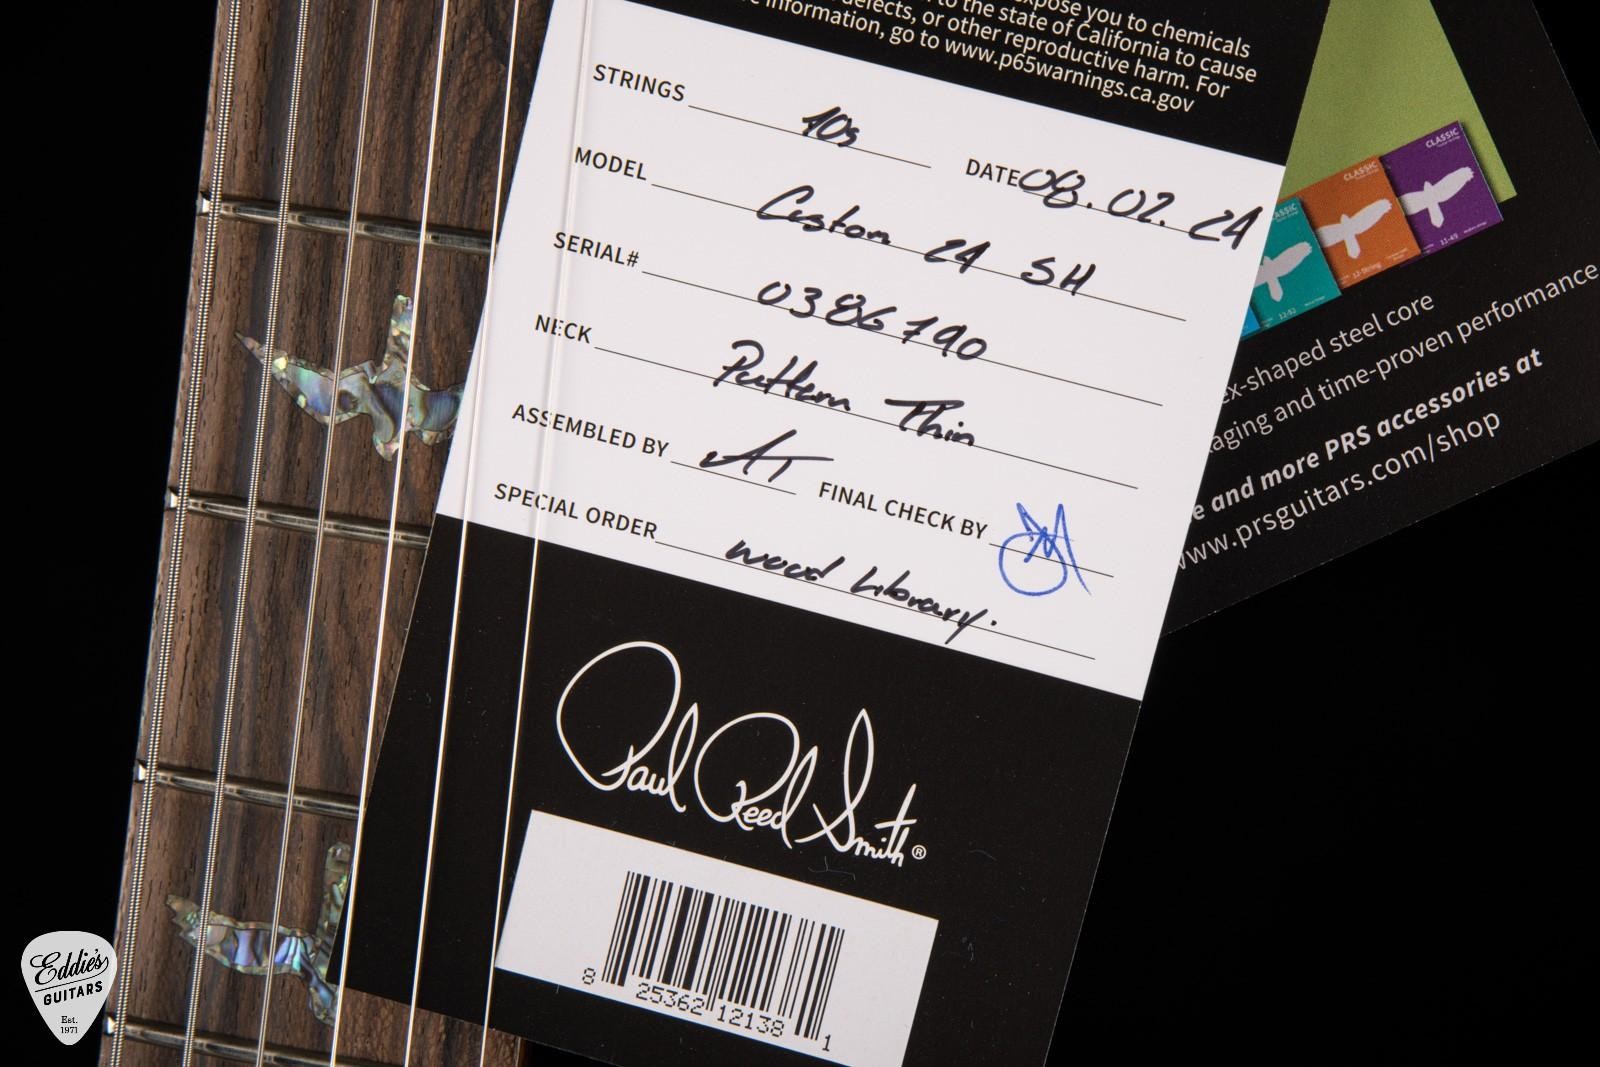 expose you to chemicals
to the state of California to cause
defects, or other reproductive harm. For
information, go to www.p65warnings.ca.gov
STRINGS 10s DATE 08.02.24
MODEL Custom 24 SH
SERIAL# 0386790
NECK Pattern Thin
ASSEMBLED BY AT FINAL CHECK BY
SPECIAL ORDER Wood Library.
Paul Reed Smith®
8 25362 12138 1
CLASSIC
CLASSIC
CLASSIC
12-String
11-49
ex-shaped steel core
aging and time-proven performance
e and more PRS accessories at
www.prsguitars.com/shop
Eddie's
GUITARS
Est.
1971